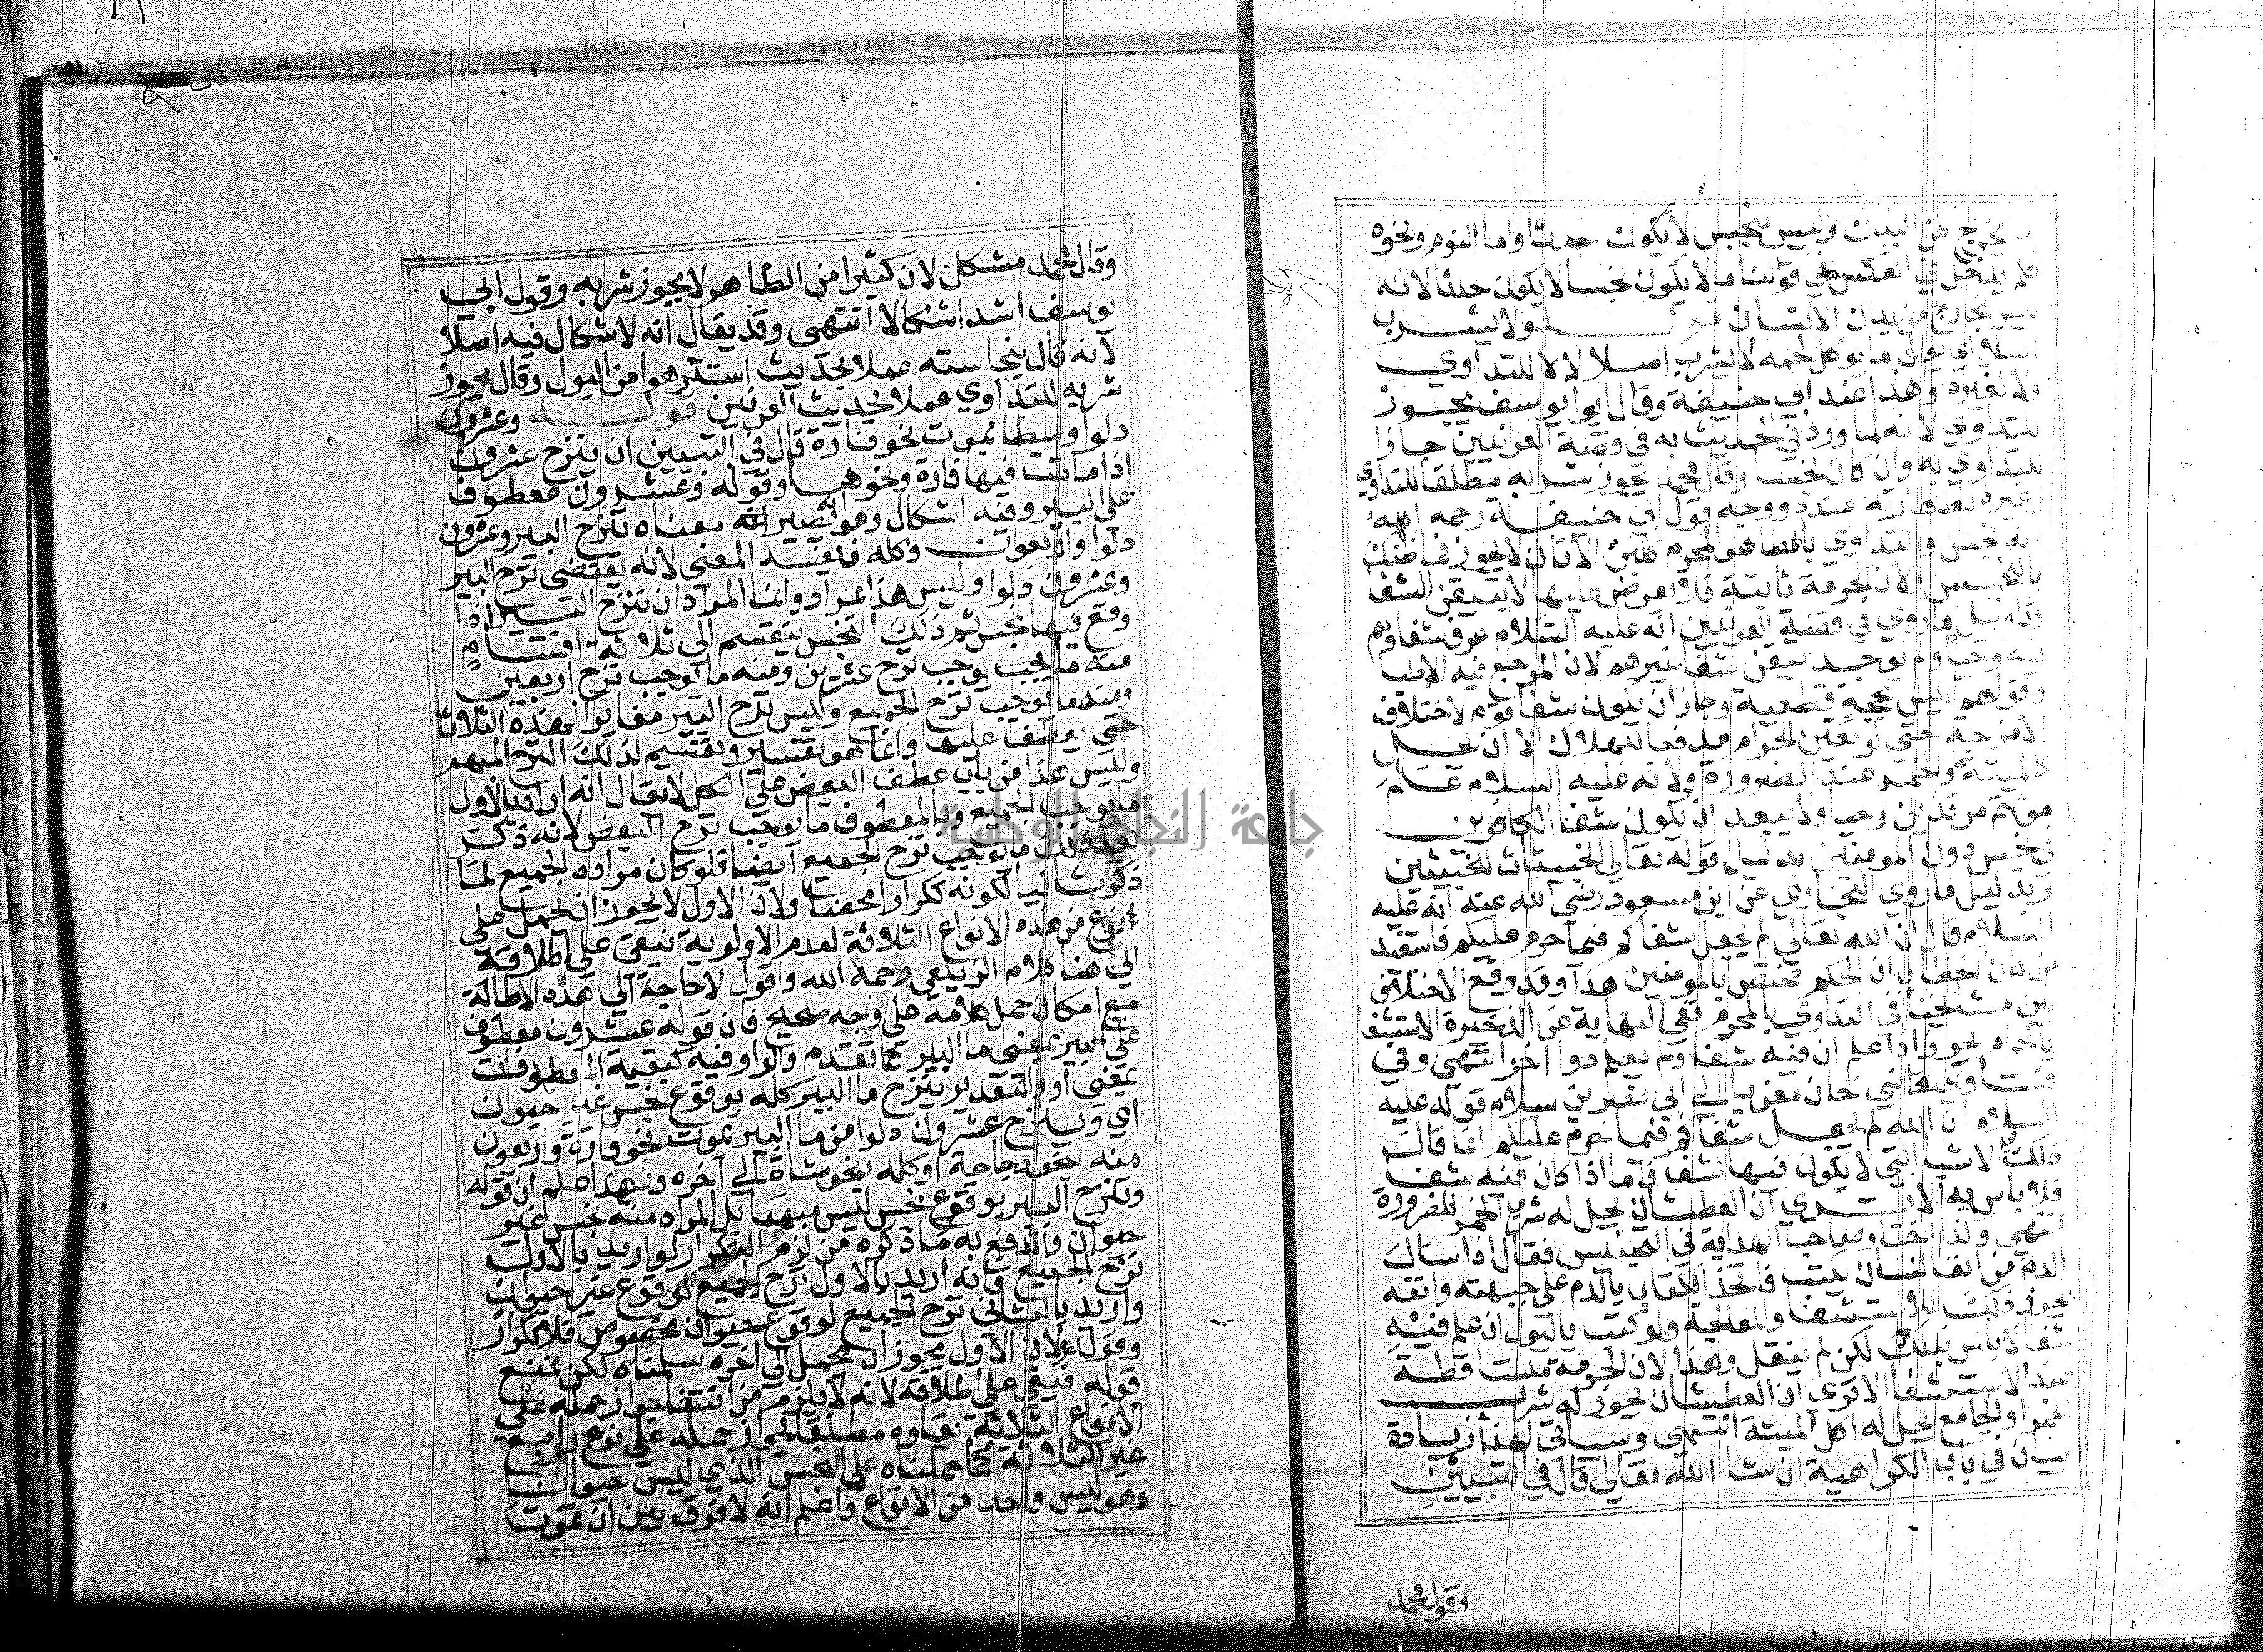 يخرج من البدن وليس بنجس لا يكون حدثا واما النوم ونحوه
فلم يدخل في العكس في قولنا ما لا يكون نجسا لا يكون حدثا لانه
ليس بخارج من بدن الانسان قوله ولا يشرب
اصلا اي بول ما يوكل لحمه لا يشرب اصلا لا للتداوي
ولا لغيره وهذا عند ابي حنيفة وقال ابو يوسف يجوز
للتداوي لانه لما ورد الحديث به في قصة العرنيين جاز
التداوي به وان كان نجسا وقال محمد يجوز شربه مطلقا للتداوي
وغيره لطهارته عنده ووجه قول ابي حنيفة رحمه الله
انه نجس والتداوي بالطاهر المحرم كلبن الاتان لا يجوز فما ظنك
بالنجس لان الحرمة ثابتة فلا يعرض عنها الا بتيقن الشفا
وتاويل ما روي في قصة العرنيين انه عليه السلام عرف شفاوهم
فيه وحيا ولم يوجد تيقن شفا غيرهم لان المرجع فيه الاطبا
وقولهم ليس بحجة قطعية وجاز ان يكون شفا قوم لاختلاف
الامزجة حتى لو تعين الحرام مدفعا للهلاك الان يحل
كالميتة والخمر عند الضرورة ولانه عليه السلام علم
موتهم مرتدين وحيا ولا يبعد ان يكون شفا الكافرين
في نجس دون المومنين بدليل قوله تعالى الخبيثات للخبيثين
وبدليل ما روي البخاري عن ابن مسعود رضي الله عنه انه عليه
السلام قال ان الله تعالى لم يجعل شفاكم فيما حرم عليكم فاستفيد
من كاف الخطاب ان الحكم مختص بالمومنين هذا وقد وقع الاختلاف
بين مشايخنا في التداوي بالمحرم ففي النهاية عن الذخيرة الاستشفا
بالحرام يجوز اذا علم ان فيه شفا ولم يعلم دوا اخر انتهى وفي
فتاوي قاضي خان معزيا الى ابي نصر بن سلام قوله عليه
السلام ان الله لم يجعل شفاكم فيما حرم عليكم انما قال
ذلك في الاشيا التي لا يكون فيها شفا فاما اذا كان فيه شفا
فلا باس به الا تري ان العطشان يحل له شرب الخمر للضرورة
انتهى وكذا اختار صاحب الهداية في التجنيس فقال اذا سال
الدم من انف انسان يكتب فاتحة الكتاب بالدم على جبهته وانفه
يجوز ذلك للاستشفا والمعالجة ولو كتب بالبول ان علم فيه
شفا لا باس بذلك لكن لم ينقل وهذا لان الحرمة ساقطة
عند الاستشفا الا تري ان العطشان يجوز له شرب
الخمر والجايع يحل له اكل الميتة انتهى وسياتي لهذا زيادة
بيان في باب الكراهية ان شا الله تعالى قال في التبيين
وقول محمد
وقال محمد مشكل لان كثيرا من الطاهر لا يجوز شربه وقول ابي
يوسف اشد اشكالا انتهى وقد يقال انه لا اشكال فيه اصلا
لانه قال بنجاسته عملا بحديث استنزهوا من البول وقال يجوز
شربه للتداوي عملا بحديث العرنيين قوله وعشرون
دلوا وسطا بموت نحو فارة قال في التبيين ان ينزح عشرون
اذا ماتت فيها فارة ونحوها وقوله وعشرون معطوف
على البير وفيه اشكال وهو انه يصير معناه تنزح البير وعشرون
دلوا واربعون وكله فيفسد المعنى لانه يقتضي نزح البير
وعشرون دلوا وليس هذا بمراد وانما المراد ان تنزح البير اذا
وقع فيها نجس ثم ذلك النجس ينقسم الى ثلاثة اقسام
منه ما يوجب نزح عشرين ومنه ما يوجب نزح اربعين
ومنه ما يوجب نزح الجميع وليس نزح البير مغايرا لهذه الثلاثة
حتى يعطف عليها وانما هو تفسير وتقسيم لذلك النزح المبهم
وليس هذا من باب عطف البعض على الكل لا يقال انه اراد بالاول
ما يوجب الجميع وبالمعطوف ما يوجب نزح البعض لانه ذكر
بعد ذلك ما يوجب نزح الجميع ايضا فلو كان مراده الجميع لما
ذكره ثانيا لكونه تكرارا محضا ولان الاول لا يجوز ان يحمل على
انواع من هذه الانواع الثلاثة لعدم الاولوية فبقي على اطلاقه
الى هنا كلام الزيلعي رحمه الله واقول لا حاجة الى هذه الاطالة
مع امكان حمل كلامه على وجه صحيح فان قوله عشرون معطوف
على البير بمعنى ما البير كما تقدم والواو فيه كبقية المعطوفات
بمعنى او والتقدير ينزح ما البير كله بوقوع نجس غير حيوان
اي وينزح عشرون دلوا من ما البير بموت نحو فارة واربعون
منه بنحو دجاجة او كله بنحو شاة الى اخره وبهذا علم ان قوله
وتنزح البير بوقوع نجس ليس مبهما بل المراد منه نجس غير
حيوان واندفع به ما ذكره من لزم التكرار لو اريد بالاول
نزح الجميع فانه اريد بالاول نزح الجميع لوقوع غير حيوان
واريد بالثاني نزح الجميع لوقوع حيوان مخصوص فلا تكرار
وقوله ولان الاول يجوز ان يحمل الى اخره سلمناه لكن نمنع
قوله فبقي على اطلاقه لانه لا يلزم من انتفا جواز حمله على
الانواع الثلاثة بقاوه مطلقا لجواز حمله على نوع رابع
غير الثلاثة كما حملناه على النجس الذي ليس حيوانا
وهو ليس واحد من الانواع واعلم انه لا فرق بين ان تموت
جامعة النجاح الوطنية